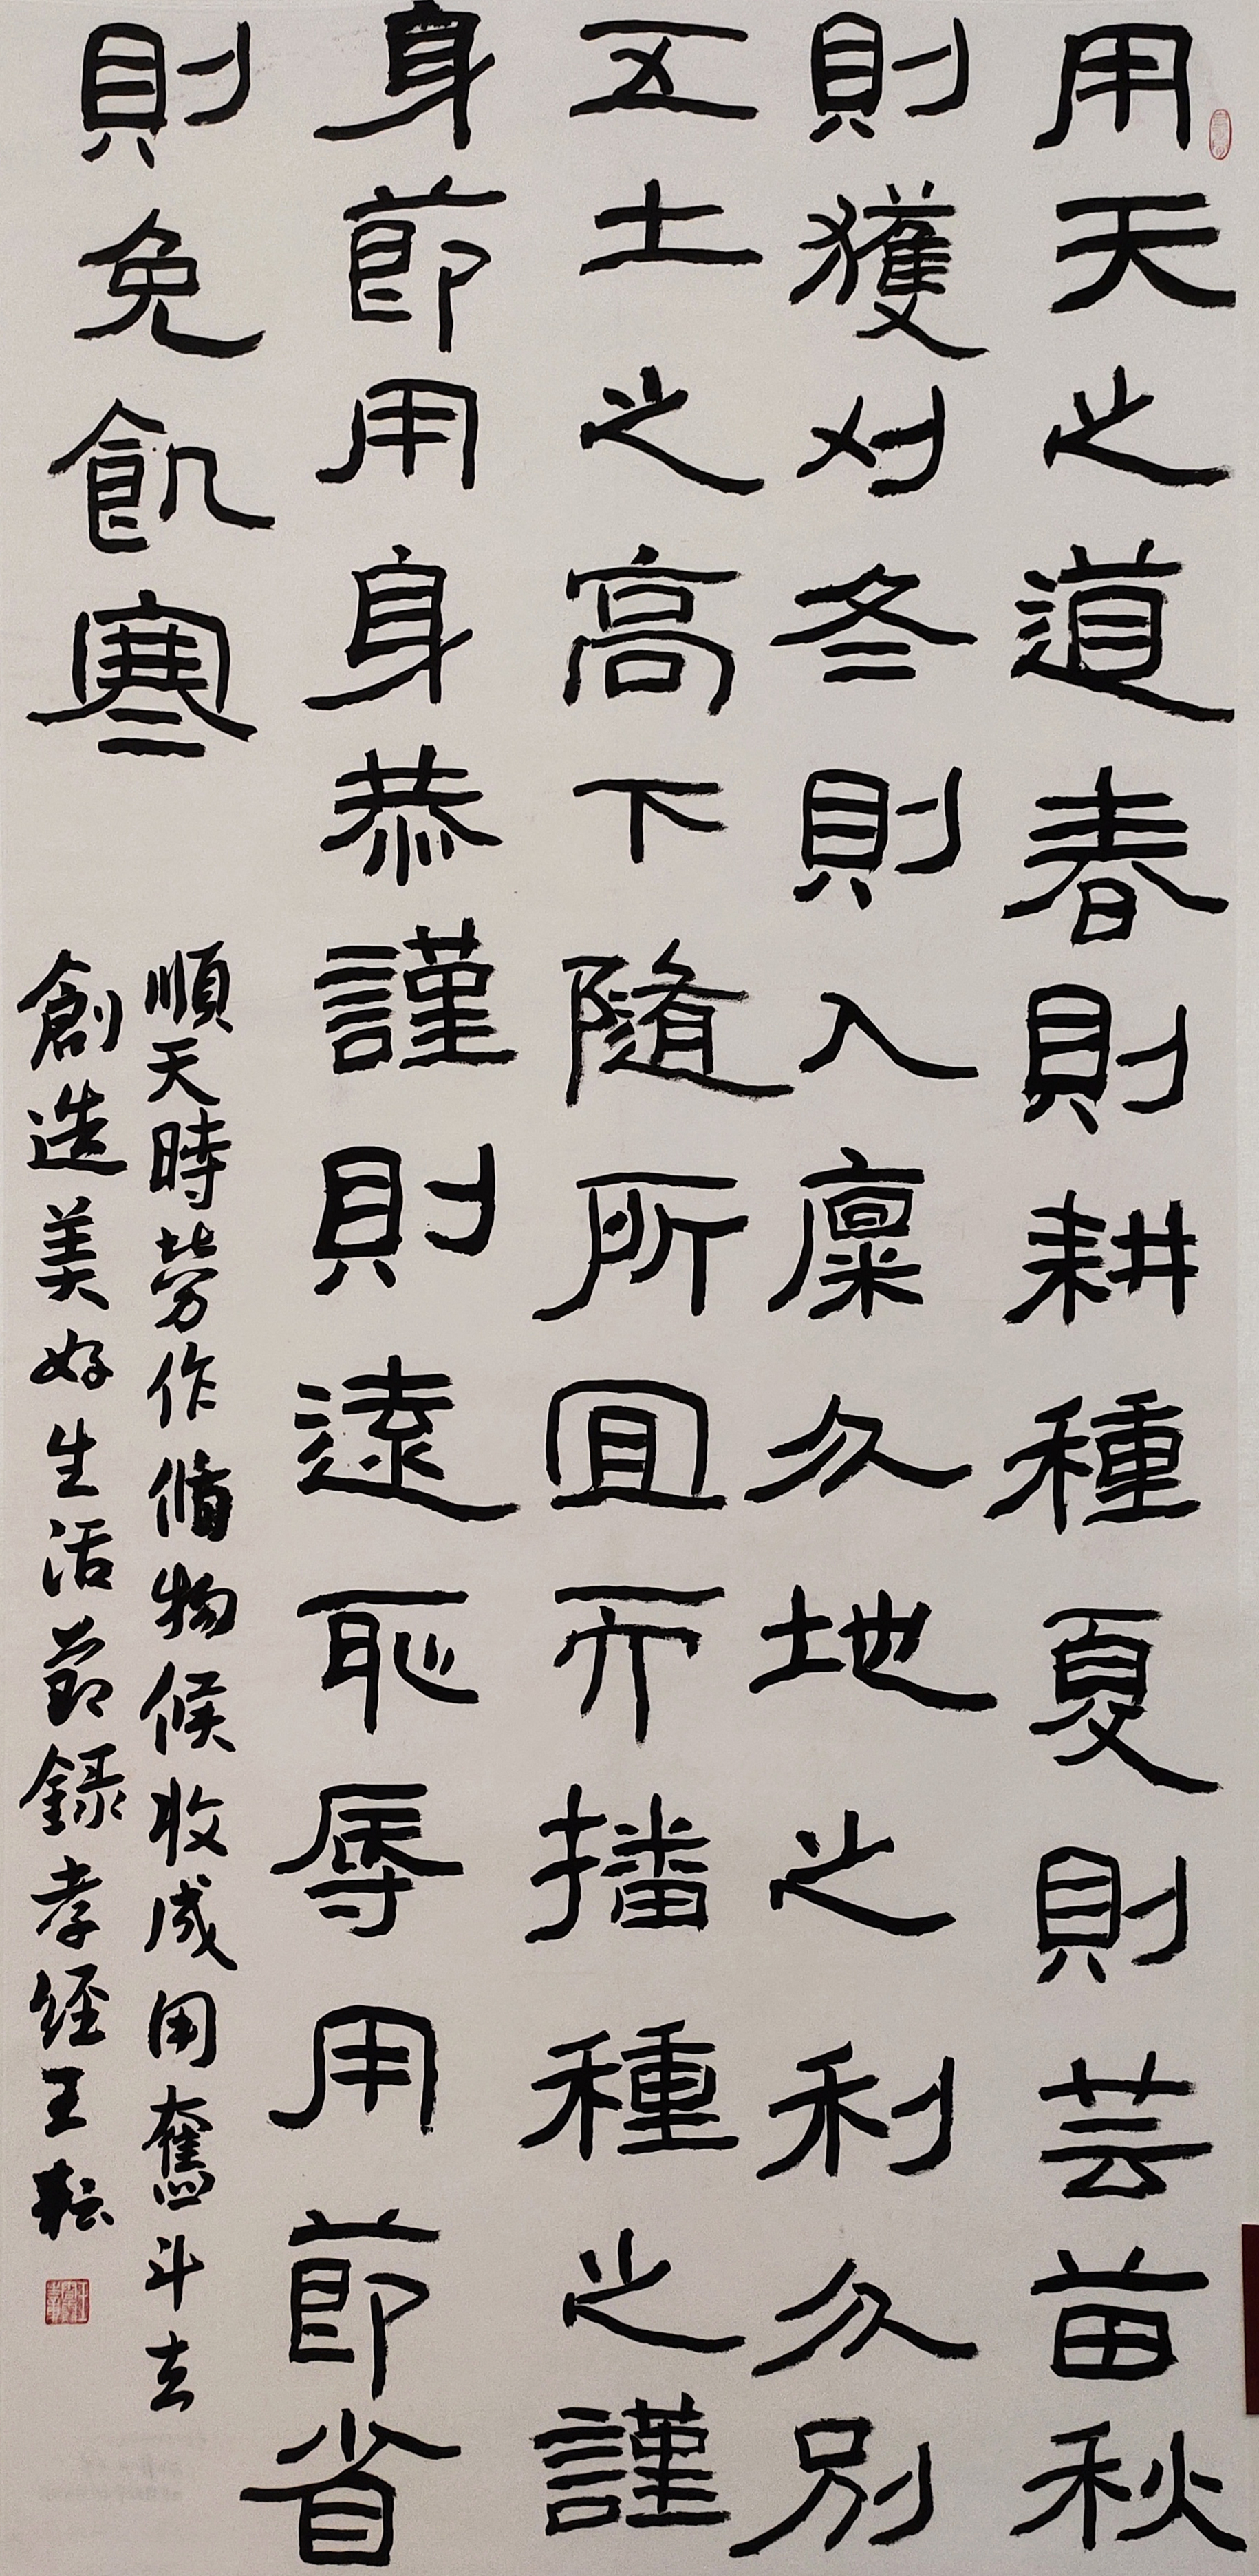 用天之道春則耕種夏則芸苗秋
則獲刈冬則入廩分地之利分別
五土之高下隨所宜而播種之謹
身節用身恭謹則遠恥辱用節省
則免飢寒
順天時勞作循物候收成用奮斗去
創造美好生活節錄孝經王耘